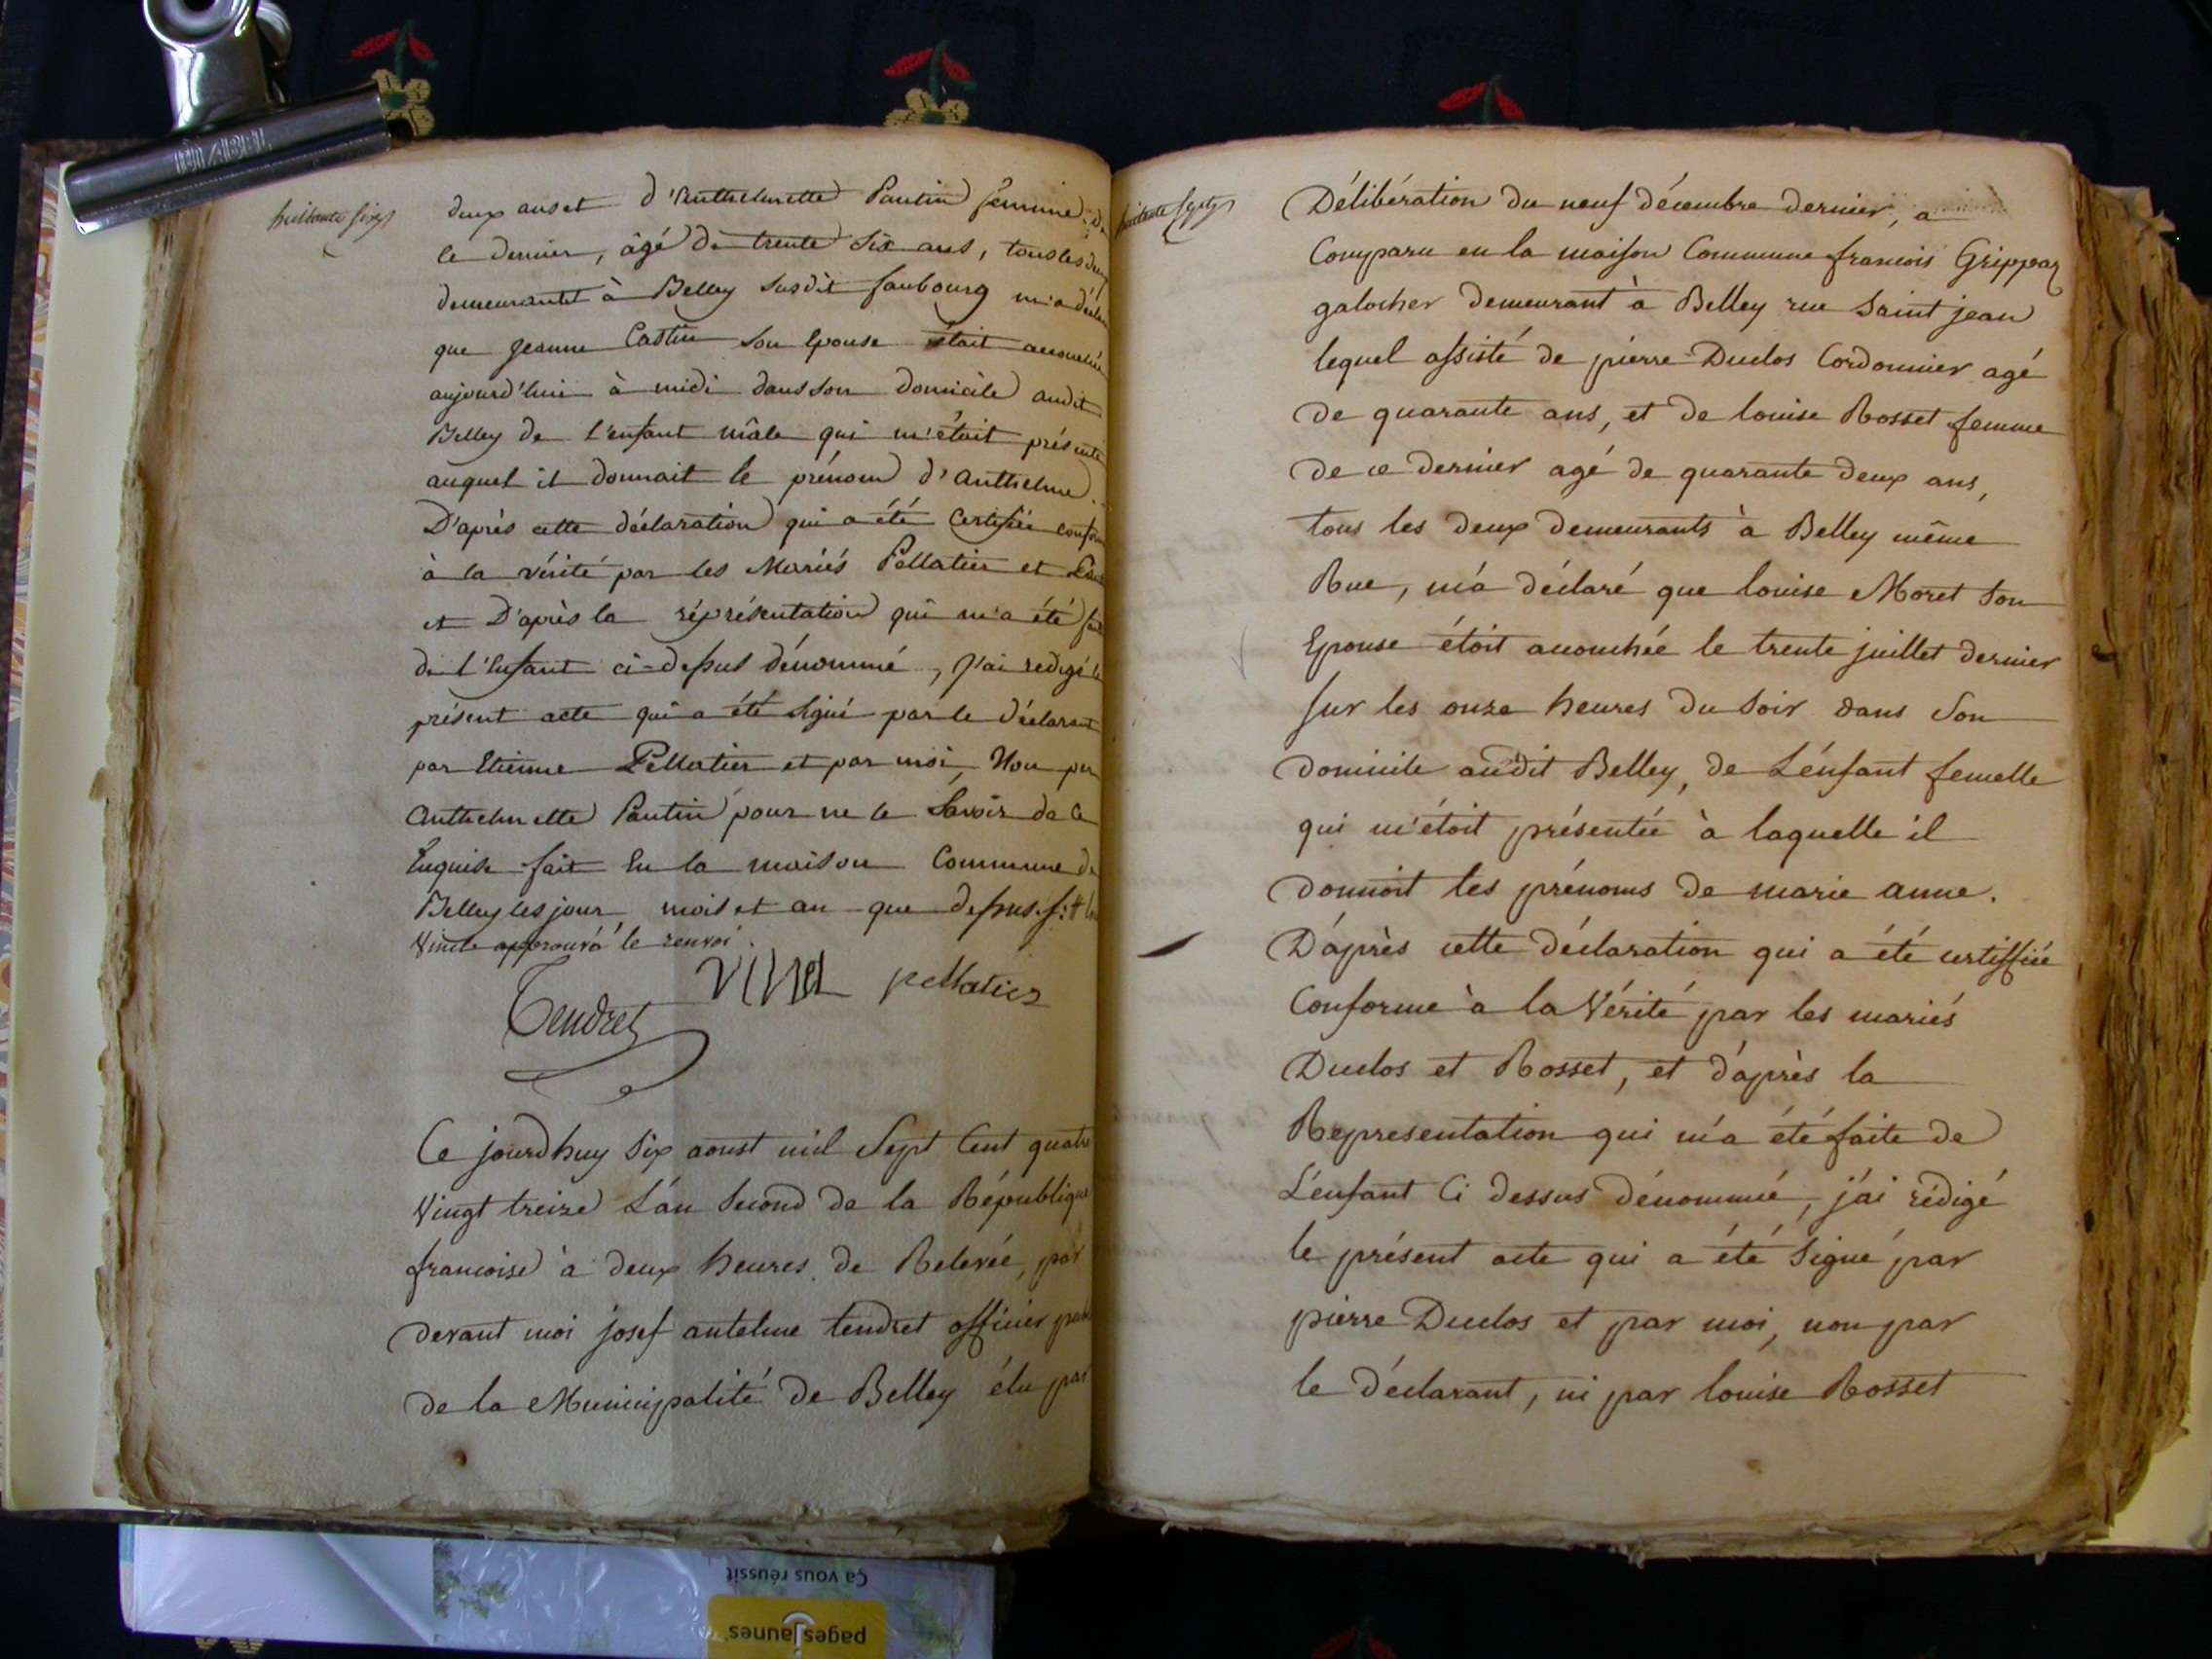 huittante sixe
deux ans et d'Anthelmette Pantin femme
le dernier, âgé de trente Six ans, tous les deux
demeurantt à Belley susdit faubourg m'a déclar
que jeanne Castin son Epouse était accouchée
aujourd'hui à midi dans son domicile audit
Belley de l'enfant mâle qui m'était présenté
auquel il donnait le prénom d'Anthelme.
D'après cette déclaration qui a été certifiée confor
à la vérité par les Mariés Pellatier et
et D'après la réprésentation qui m'a été fait
de l'Enfant ci-dessus dénommé, J'ai redigé le
présent acte qui a été signé par le déclarant
par Etienne Pellatier et par moi, Non par
Anthelmette Pantin pour ne le Savoir de ce
Enquise fait En la maison Commune de
Belley les jour, mois et an que dessus
approuvé le renvoi.
Vinet pellatier
Tendret
Ce jourdhuy Six aoust mil Sept Cent quatre
Vingt treize L'an Second de la République
francoise à deux heures de Relevée, par
devant moi josef antelme tendret officier pub
de la Municipalité de Belley élu par
huittante septe
Délibération du neuf décembre dernier, a
Comparu en la maison Commune francois Grippaz
galocher demeurant à Belley rue Saint jean
lequel assisté de pierre Duclos Cordonnier agé
de quarante ans, et de louise Rosset femme
de ce dernier agé de quarante deux ans,
tous les deux demeurants à Belley même
Rue, m'a déclaré que louise Moret Son
Epouse étoit accouchée le trente juillet dernier
sur les onze heures du Soir dans Son
domicile audit Belley, de L'enfant femelle
qui m'étoit présentée à laquelle il
donnoit les prénoms de marie anne.
D'après cette déclaration qui a été certiffiée
Conforme à la Vérité par les mariés
Duclos et Rosset, et d'après la
Representation qui m'a été faite de
L'enfant Ci dessus dénommé, j'ai rédigé
le présent acte qui a été Signé par
pierre Duclos et par moi, non par
le déclarant, ni par louise Rosset
Ça vous réussit
pagesjaunes